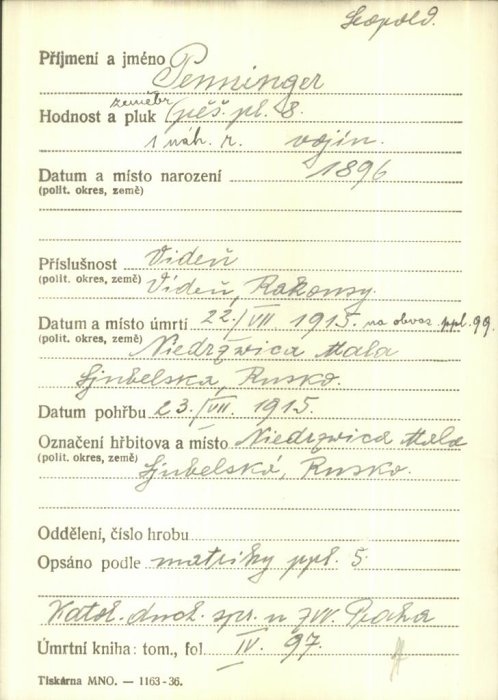 Leopold.
Příjmení a jméno Penninger
zeměbr.
Hodnost a pluk pěš. pl. 8.
1 náh. r. vojín.
Datum a místo narození 1896
(polit. okres, země)
Příslušnost Vídeň
(polit. okres, země) Vídeň, Rakousy
Datum a místo úmrtí 22./VII. 1915. na obvaz. ppl. 99.
(polit. okres, země) Niedrzwica Mala
Ljubelská, Rusko.
Datum pohřbu 23./VII. 1915.
Označení hřbitova a místo Niedrzwica Mala
(polit. okres, země) Ljubelská, Rusko.
Oddělení, číslo hrobu
Opsáno podle matriky ppl. 5.
Katol. duch. spr. u ZVV. Praha
Úmrtní kniha: tom., fol. IV. 97.
Tiskárna MNO. — 1163-36.